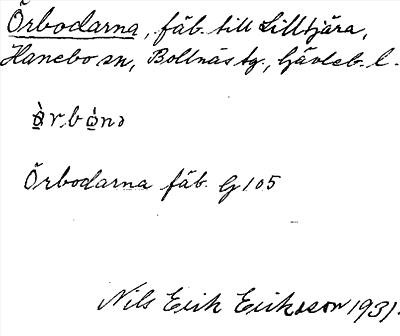 Örbodarna, fäb. till Lilltjära,
Hanebo sn, Bollnäs tg., Gävleb. l.
Örbodarna fäb. G 105
Nils Erik Eriksson 1931.